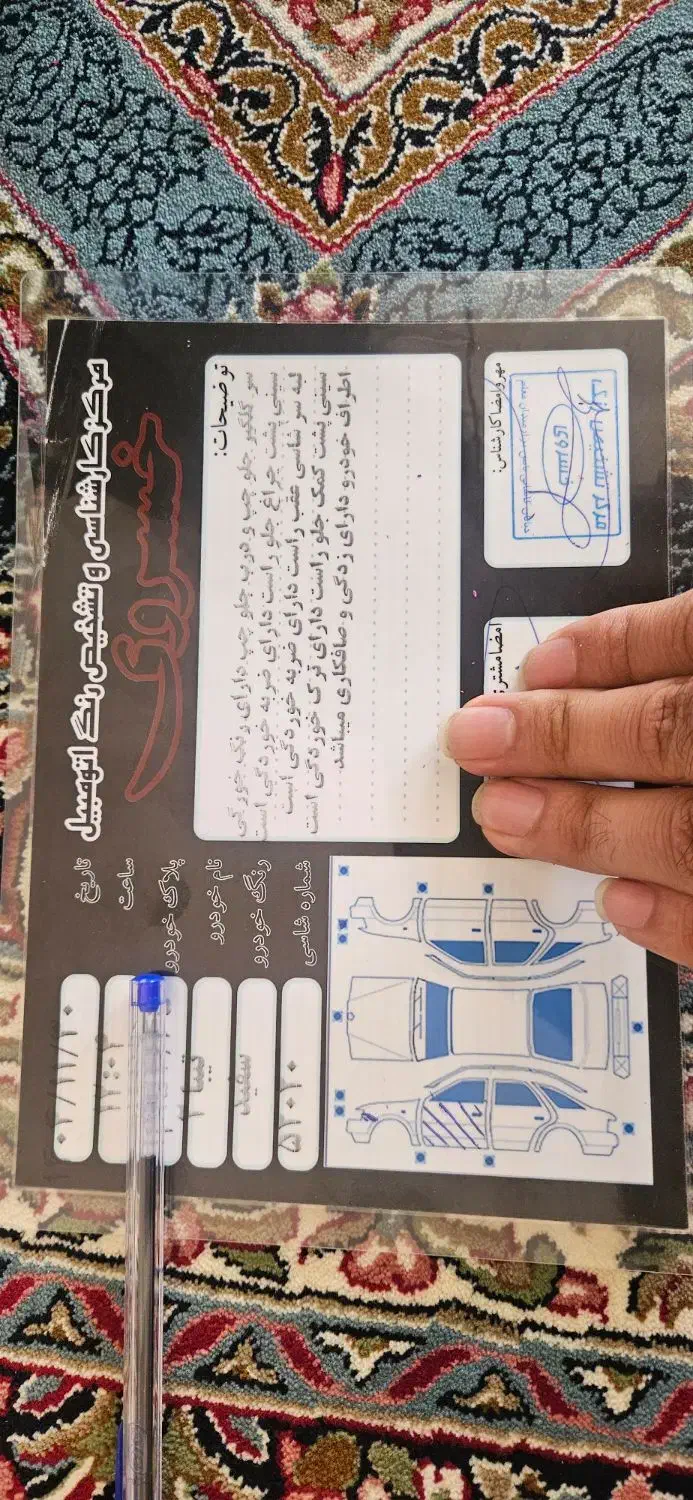 مرکز کارشناسی و تشخیص رنگ اتومبیل
خسروی
تاریخ
۰۲/۱۱/۱۰
ساعت
پلاک خودرو
نام خودرو
تیبا ۲
رنگ خودرو
سفید
شماره شاسی
۵۲۰۲۰
توضیحات:
سر گلگیر جلو چپ و درب جلو چپ دارای رنگ خوردگی
سینی پشت چراغ جلو راست دارای ضربه خوردگی است
لبه سر شاسی عقب راست دارای ضربه خوردگی است
سینی پشت کمک جلو راست دارای ترک خوردگی است
اطراف خودرو دارای زدگی و صافکاری میباشد.
مهر و امضا کارشناس:
مرکز تشخیص رنگ
خسروی
امضا مشتری